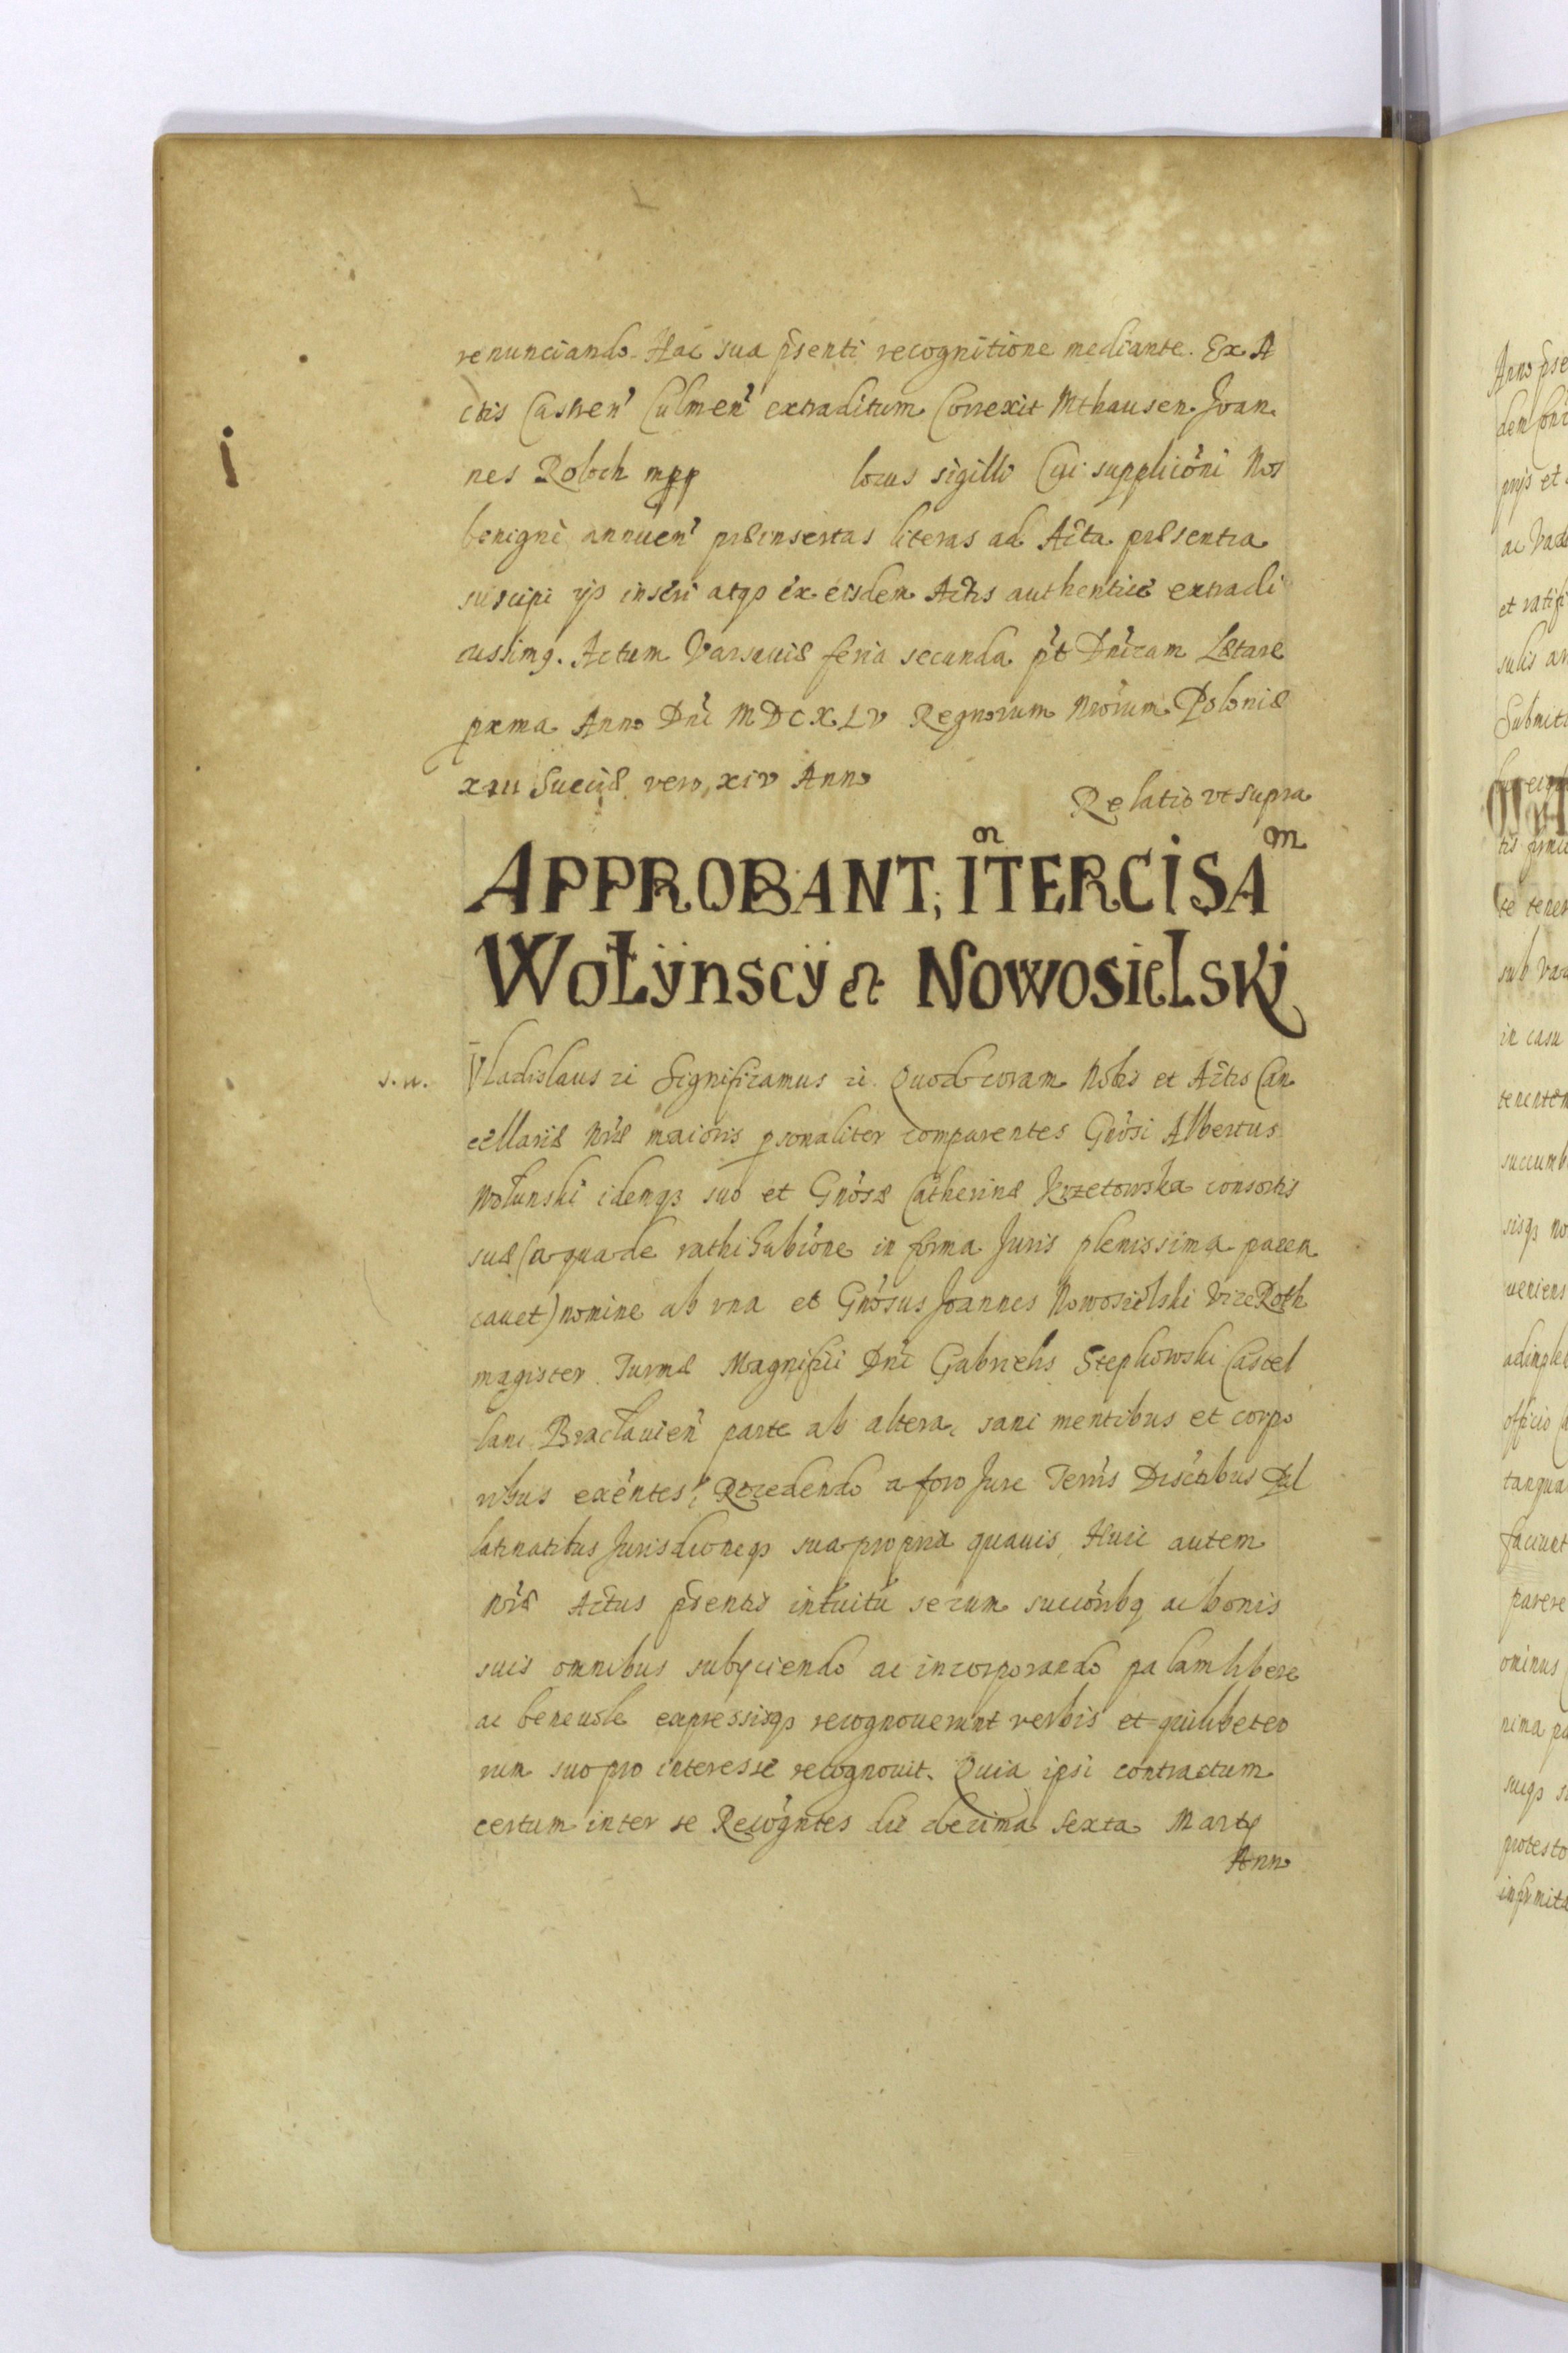 renunciando. Hac sua p̃senti recognitione mediante. Ex A
ctis Castren̉ Culmen̉ extraditum Correxit Mthausen Joan
nes Roloch mpp locus sigilli Cui supplicõni Nos
benignè annuen̉ præinsertas literas ad Acta præsentia
suscipi ijs inseri atqȝ ex eisdem Actis authenticè extradi
iussimq. Actum Varsauiæ feria secunda p̉t Dn̉icam Lætare
pxma Anno Dn̉i MDCXLV Regnorum Nrorum Poloniæ
xiii Sueciæ vero, xiv Anno
Relatio vt supra
APPROBANT, ĩTERCISA m
WOŁŸNSCŸ et NOWOSIELSKJ
J. n.
Vladislaus zi Significamus zi. Quod coram Nobis et Actis Can
cellariæ Nr̃æ maioris psonaliter comparentes Gnõsi Albertus
Wołunski idemqȝ suo et Gnõsæ Catherinæ Krzetowska consortis
suæ (a qua de rathihabiõne in forma Juris plenissima paten
cauet) nomine ab vna et Gnõsus Joannes Nowosielski ViceRoth
magister Turmæ Magnifici Dn̉i Gabrielis Stepkowski Castel
lani Bracłauien̉ parte ab altera, sani mentibus et corpo
ribus exẽntes, Recedendo a foro Jure Terris Disctibus Pal
latinatibus Jurisdicioneqȝ sua propria quauis, Huic autem
Nr̃æ Actus p̃sentis intuitu secum succõribq ac bonis
suis omnibus subÿciendo ac incorporando palam libere
ac beneuole expressisqȝ recognouerunt verbis et quilibet eo
rum suo pro interesse recognouit. Quia ipsi contractum
certum inter se Recõgntes die decima sexta Martÿ
Anno